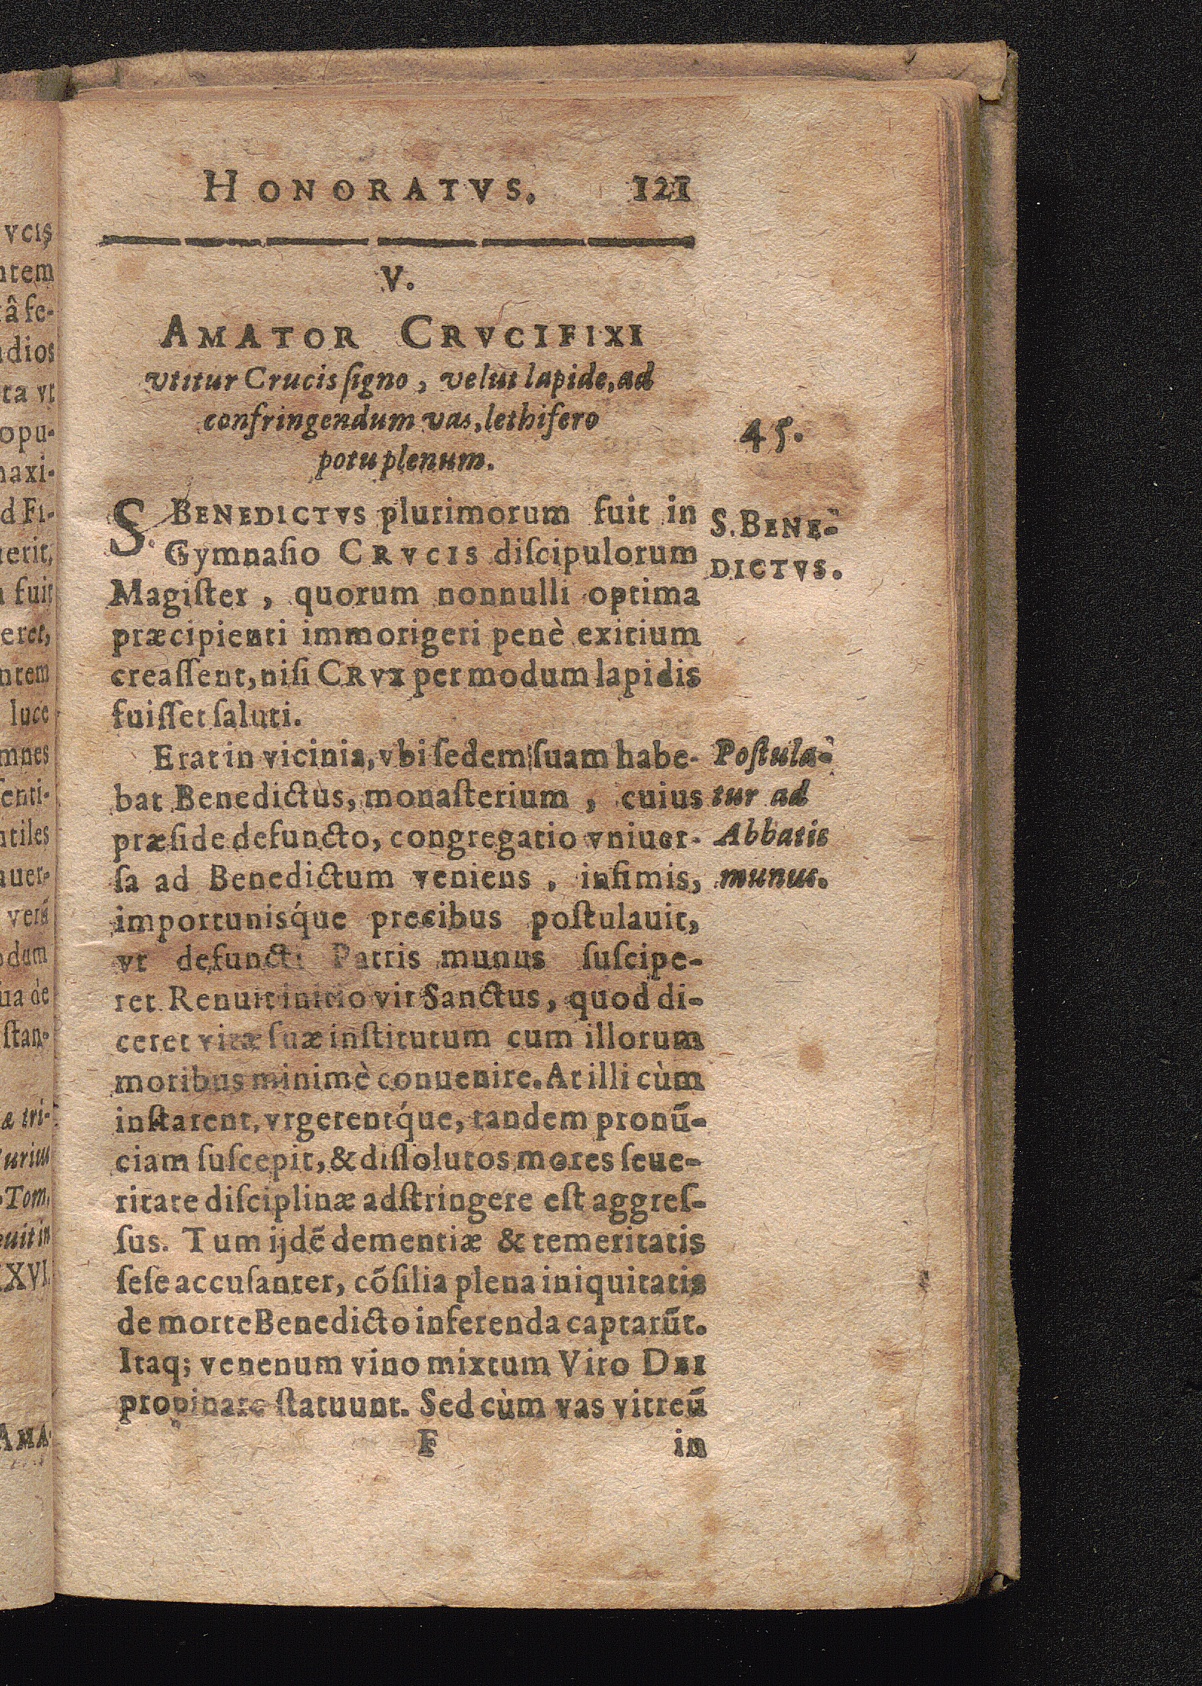 HONORATVS. 121
V.
AMATOR CRVCIFIXI
vtitur Crucis ſigno, velut lapide, ad
confringendum vas, lethifero
potu plenum.
45.
S. BENEDICTVS plurimorum fuit in
Gymnaſio CRVCIS diſcipulorum
Magiſter, quorum nonnulli optima
præcipienti immorigeri penè exitium
creaſſent, niſi CRVX per modum lapidis
fuiſſet ſaluti.
S. BENE-
DICTVS.
Erat in vicinia, vbi ſedem ſuam habe-
bat Benedictus, monaſterium, cuius
præſide defuncto, congregatio vniuer-
ſa ad Benedictum veniens, infimis,
importunisq́ue precibus poſtulauit,
vt defuncti Patris munus ſuſcipe-
ret. Renuit initio vir Sanctus, quod di-
ceret vitæ ſuæ inſtitutum cum illorum
moribus minimè conuenire. At illi cùm
inſtarent, vrgerentq́ue, tandem pronū-
ciam ſuſcepit, & diſſolutos mores ſeue-
ritate diſciplinæ adſtringere eſt aggreſ-
ſus. Tum ijdē dementiæ & temeritatis
ſeſe accuſantes, cōſilia plena iniquitatis
de morte Benedicto inferenda captarūt.
Itaq; venenum vino mixtum Viro DEI
propinare ſtatuunt. Sed cùm vas vitreū
Poſtula-
tur ad
Abbatis
munus.
F in
vcis
ntem
tâ fe-
adios
ta vt
opu-
maxi-
d Fi-
uerit,
fuit
eret,
ntem
luce
mnes
ſenti-
ntiles
auer-
verū
odum
ua de
ſtan-
æ tri-
Tom.
euit in
XXVI.
AMA-